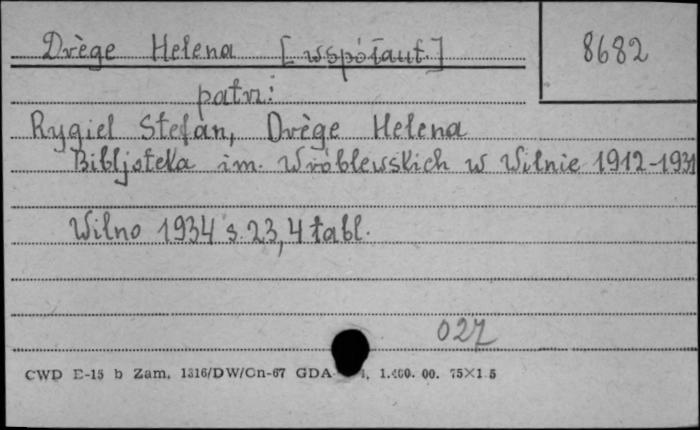 Drège Helena [współaut.]
8682
patrz:
Rygiel Stefan, Drège Helena
Bibljoteka im. Wróblewskich w Wilnie 1912-1931
Wilno 1934 s. 23, 4 tabl.
027
CWD E-15 b Zam. 1316/DW/Cn-67 GDA 1.400.00. 75×1 5